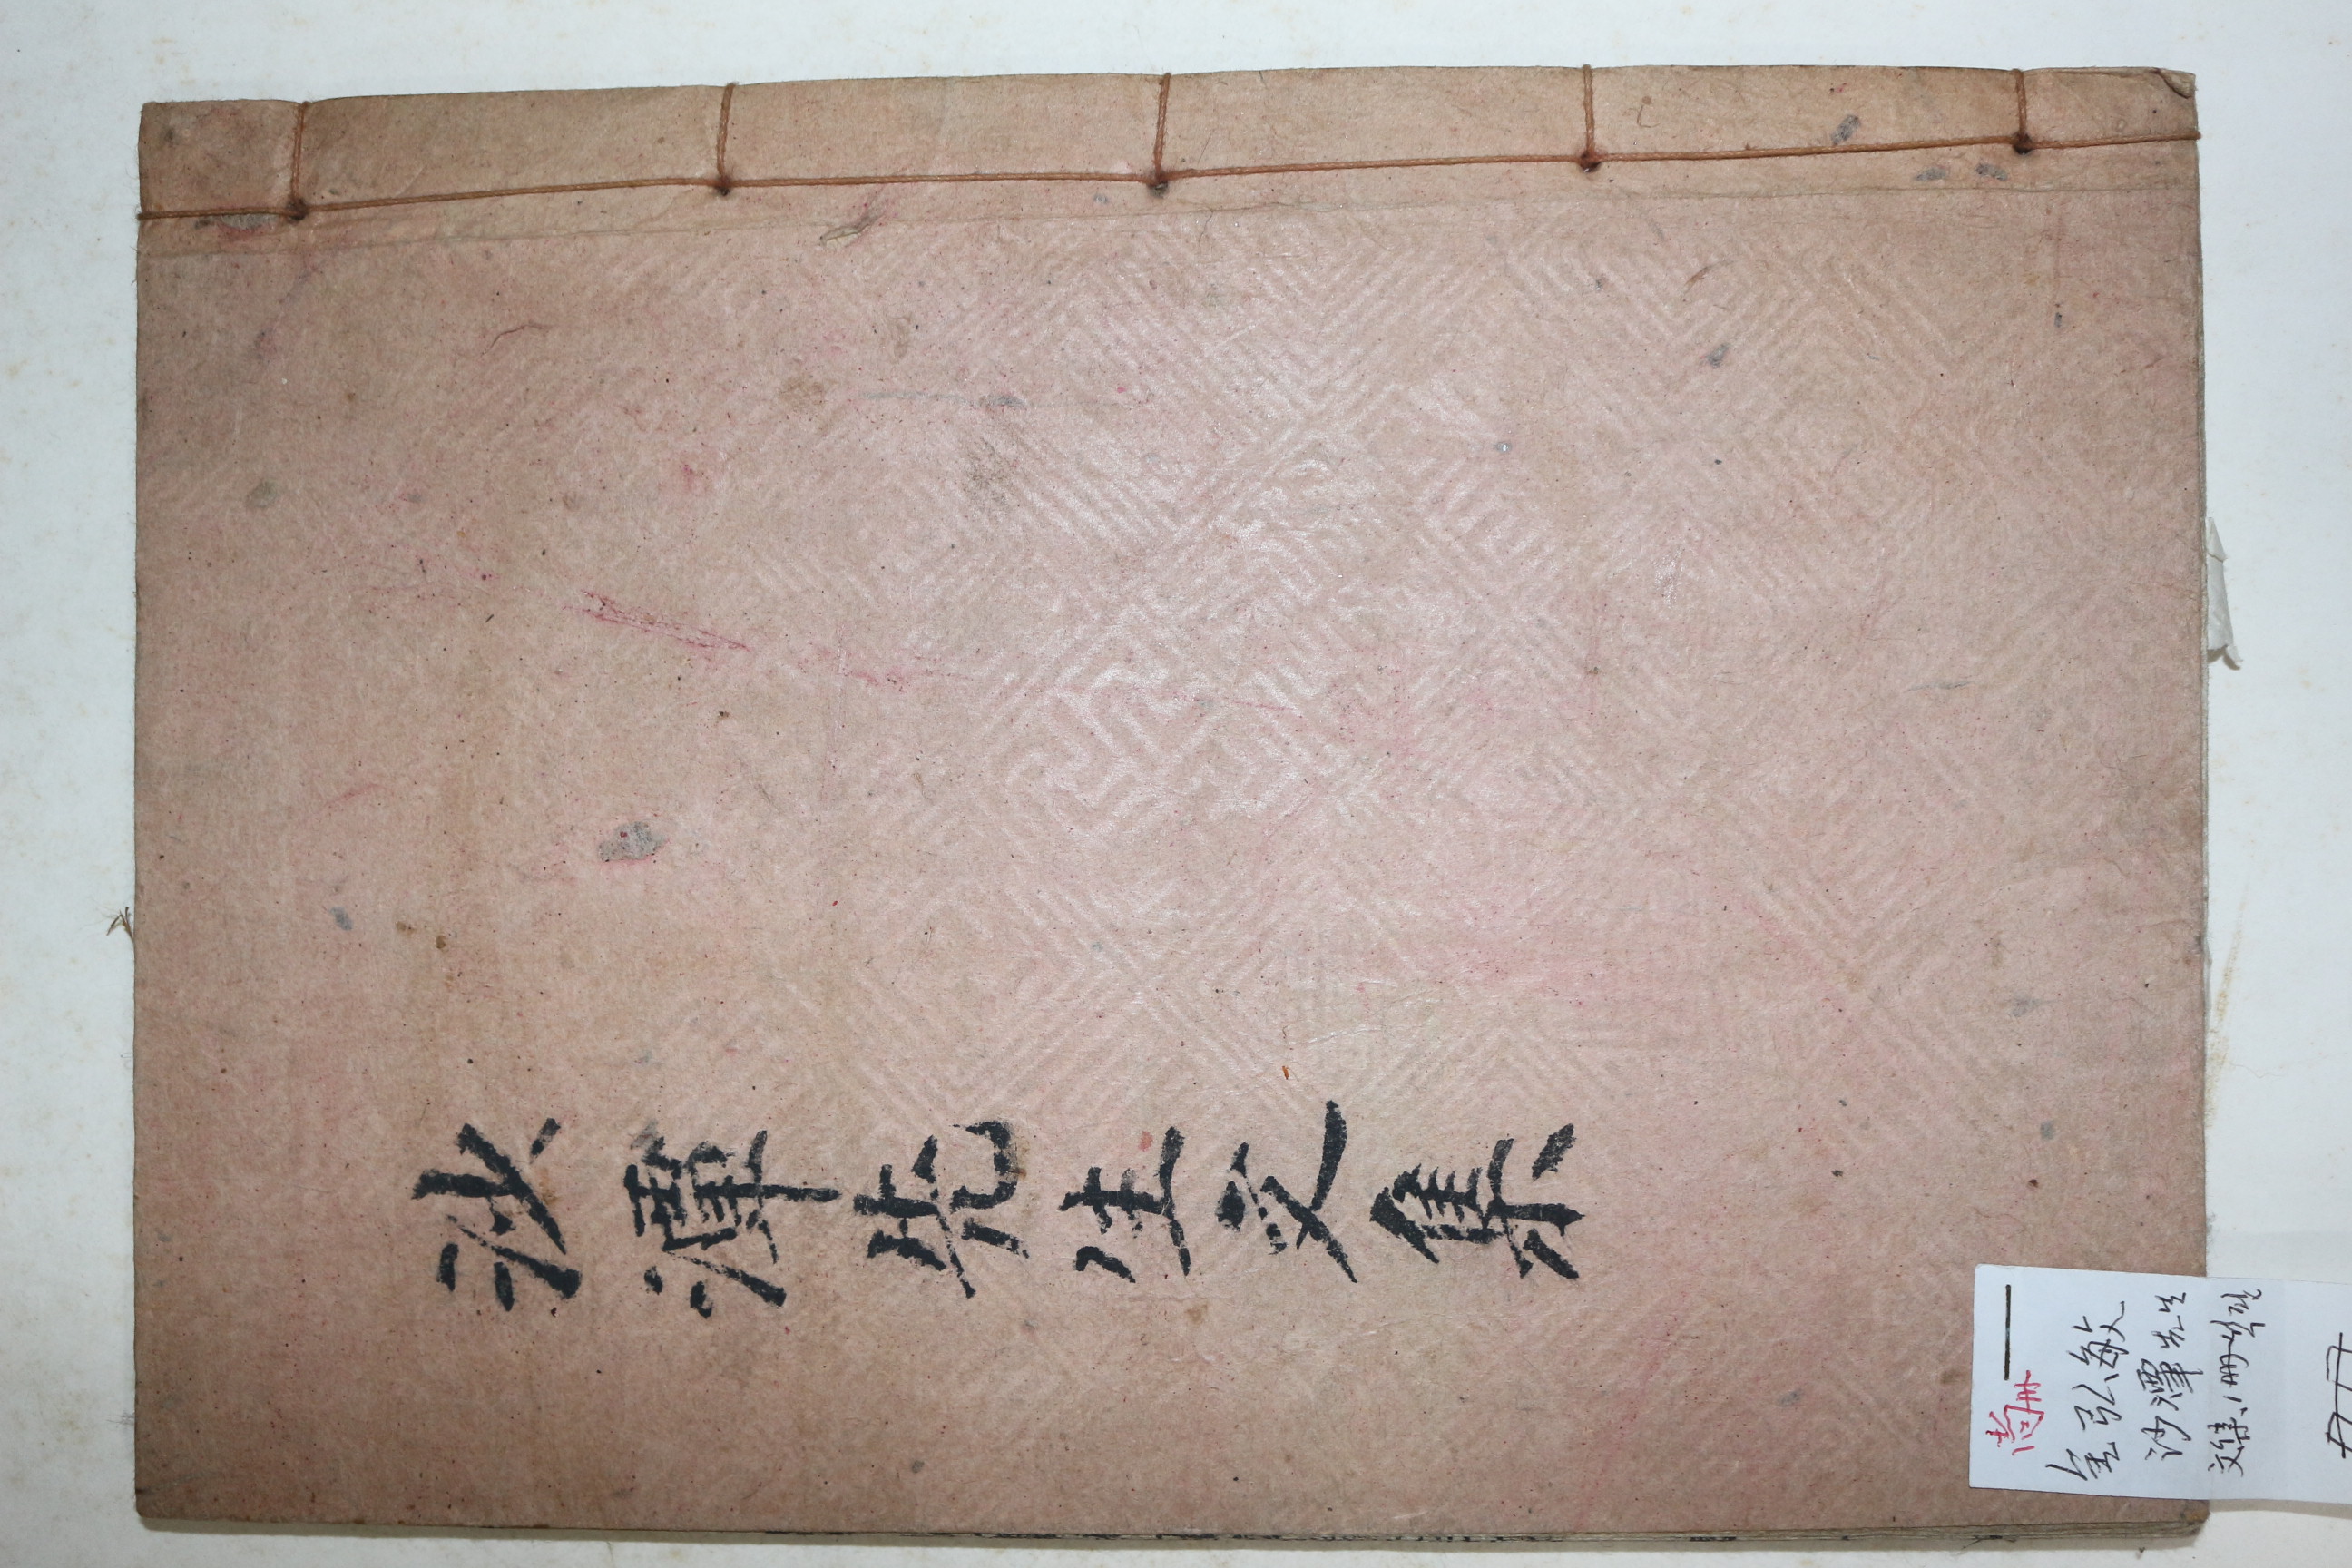 沙潭先生文集
金弘敏
沙潭先生
文集、1冊